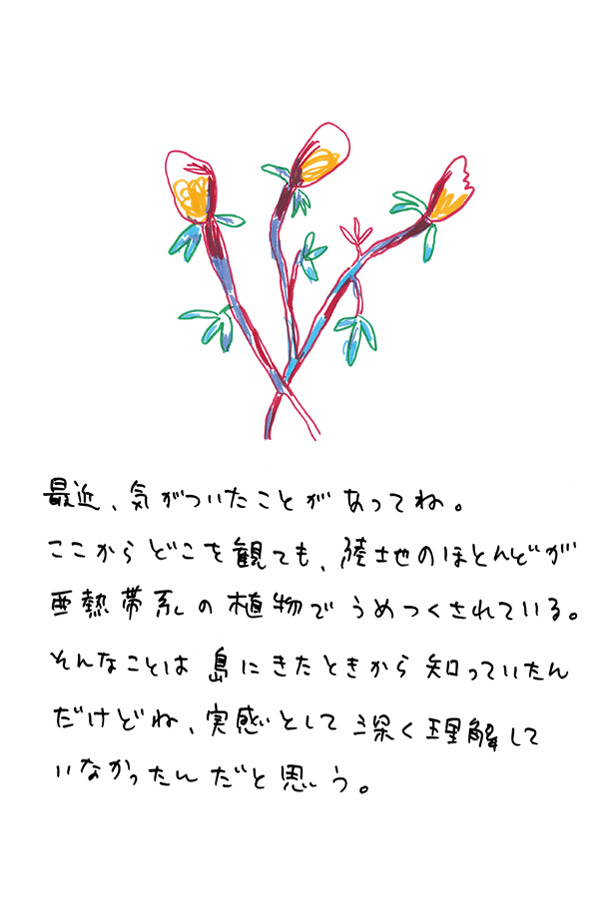 最近、気がついたことがあってね。
ここからどこを観ても、陸地のほとんどが
亜熱帯系の植物でうめつくされている。
そんなことは島にきたときから知っていたん
だけどね、実感として深く理解して
いなかったんだと思う。